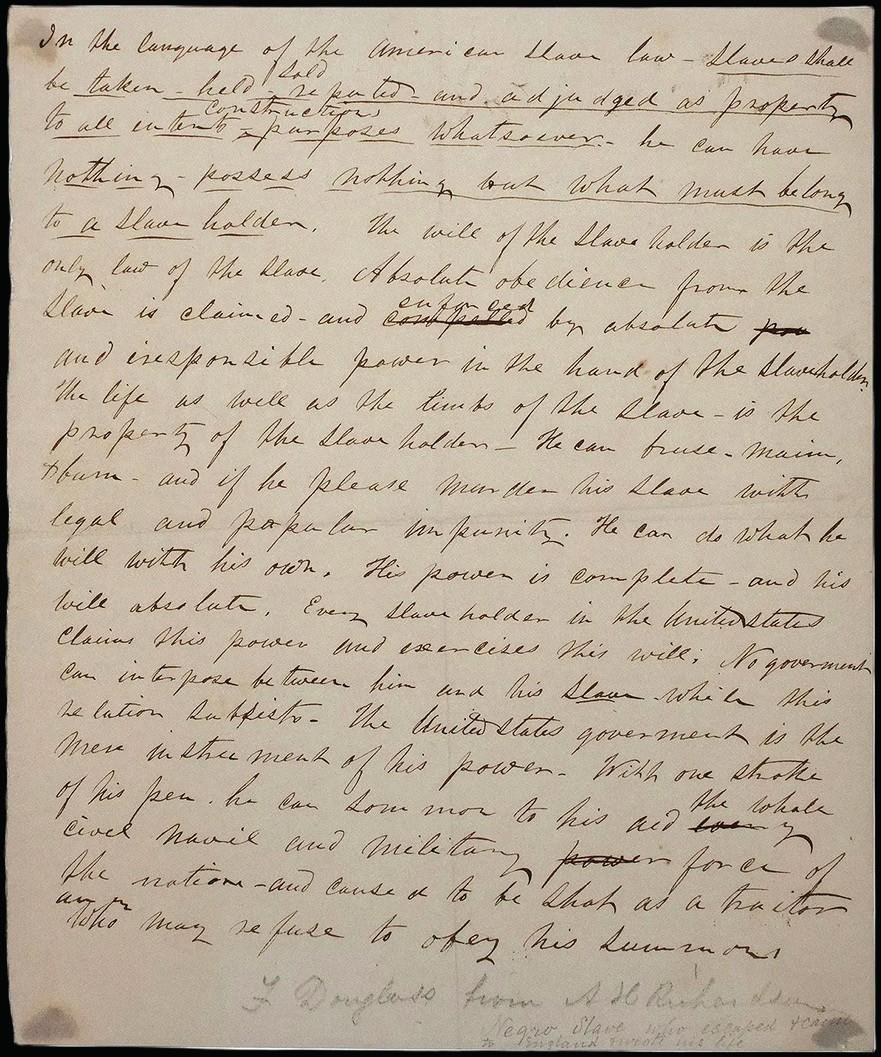 In the language of the American slave law - slaves shall
sold
be taken - held - reputed - and adjudged as property
constructions
to all intents & purposes whatsoever - he can have
nothing - possess nothing but what must belong
to a slave holder. The will of the slave holder is the
only law of the slave. Absolute obedience from the
enforced
slave is claimed - and compelled by absolute pow
and irresponsible power in the hand of the slaveholder.
The life as well as the limbs of the slave - is the
property of the slave holder - He can bruse - maim,
& burn - and if he please murder his slave with
legal and popular impunity. He can do what he
will with his own. His power is complete - and his
will absolute. Every slave holder in the United states
claims this power and exercises this will. No goverment
can interpose between him and his slave while this
relation subsists - The United states goverment is the
mere instrument of his power - With one stroke
of his pen. he can sommon to his aid the whole
civel navil and military power force of
the nation - and cause d to be shot as a traitor
any
who may refuse to obey his summons
F Douglass from A H Richardson
Negro Slave who escaped & came
to England & wrote his life